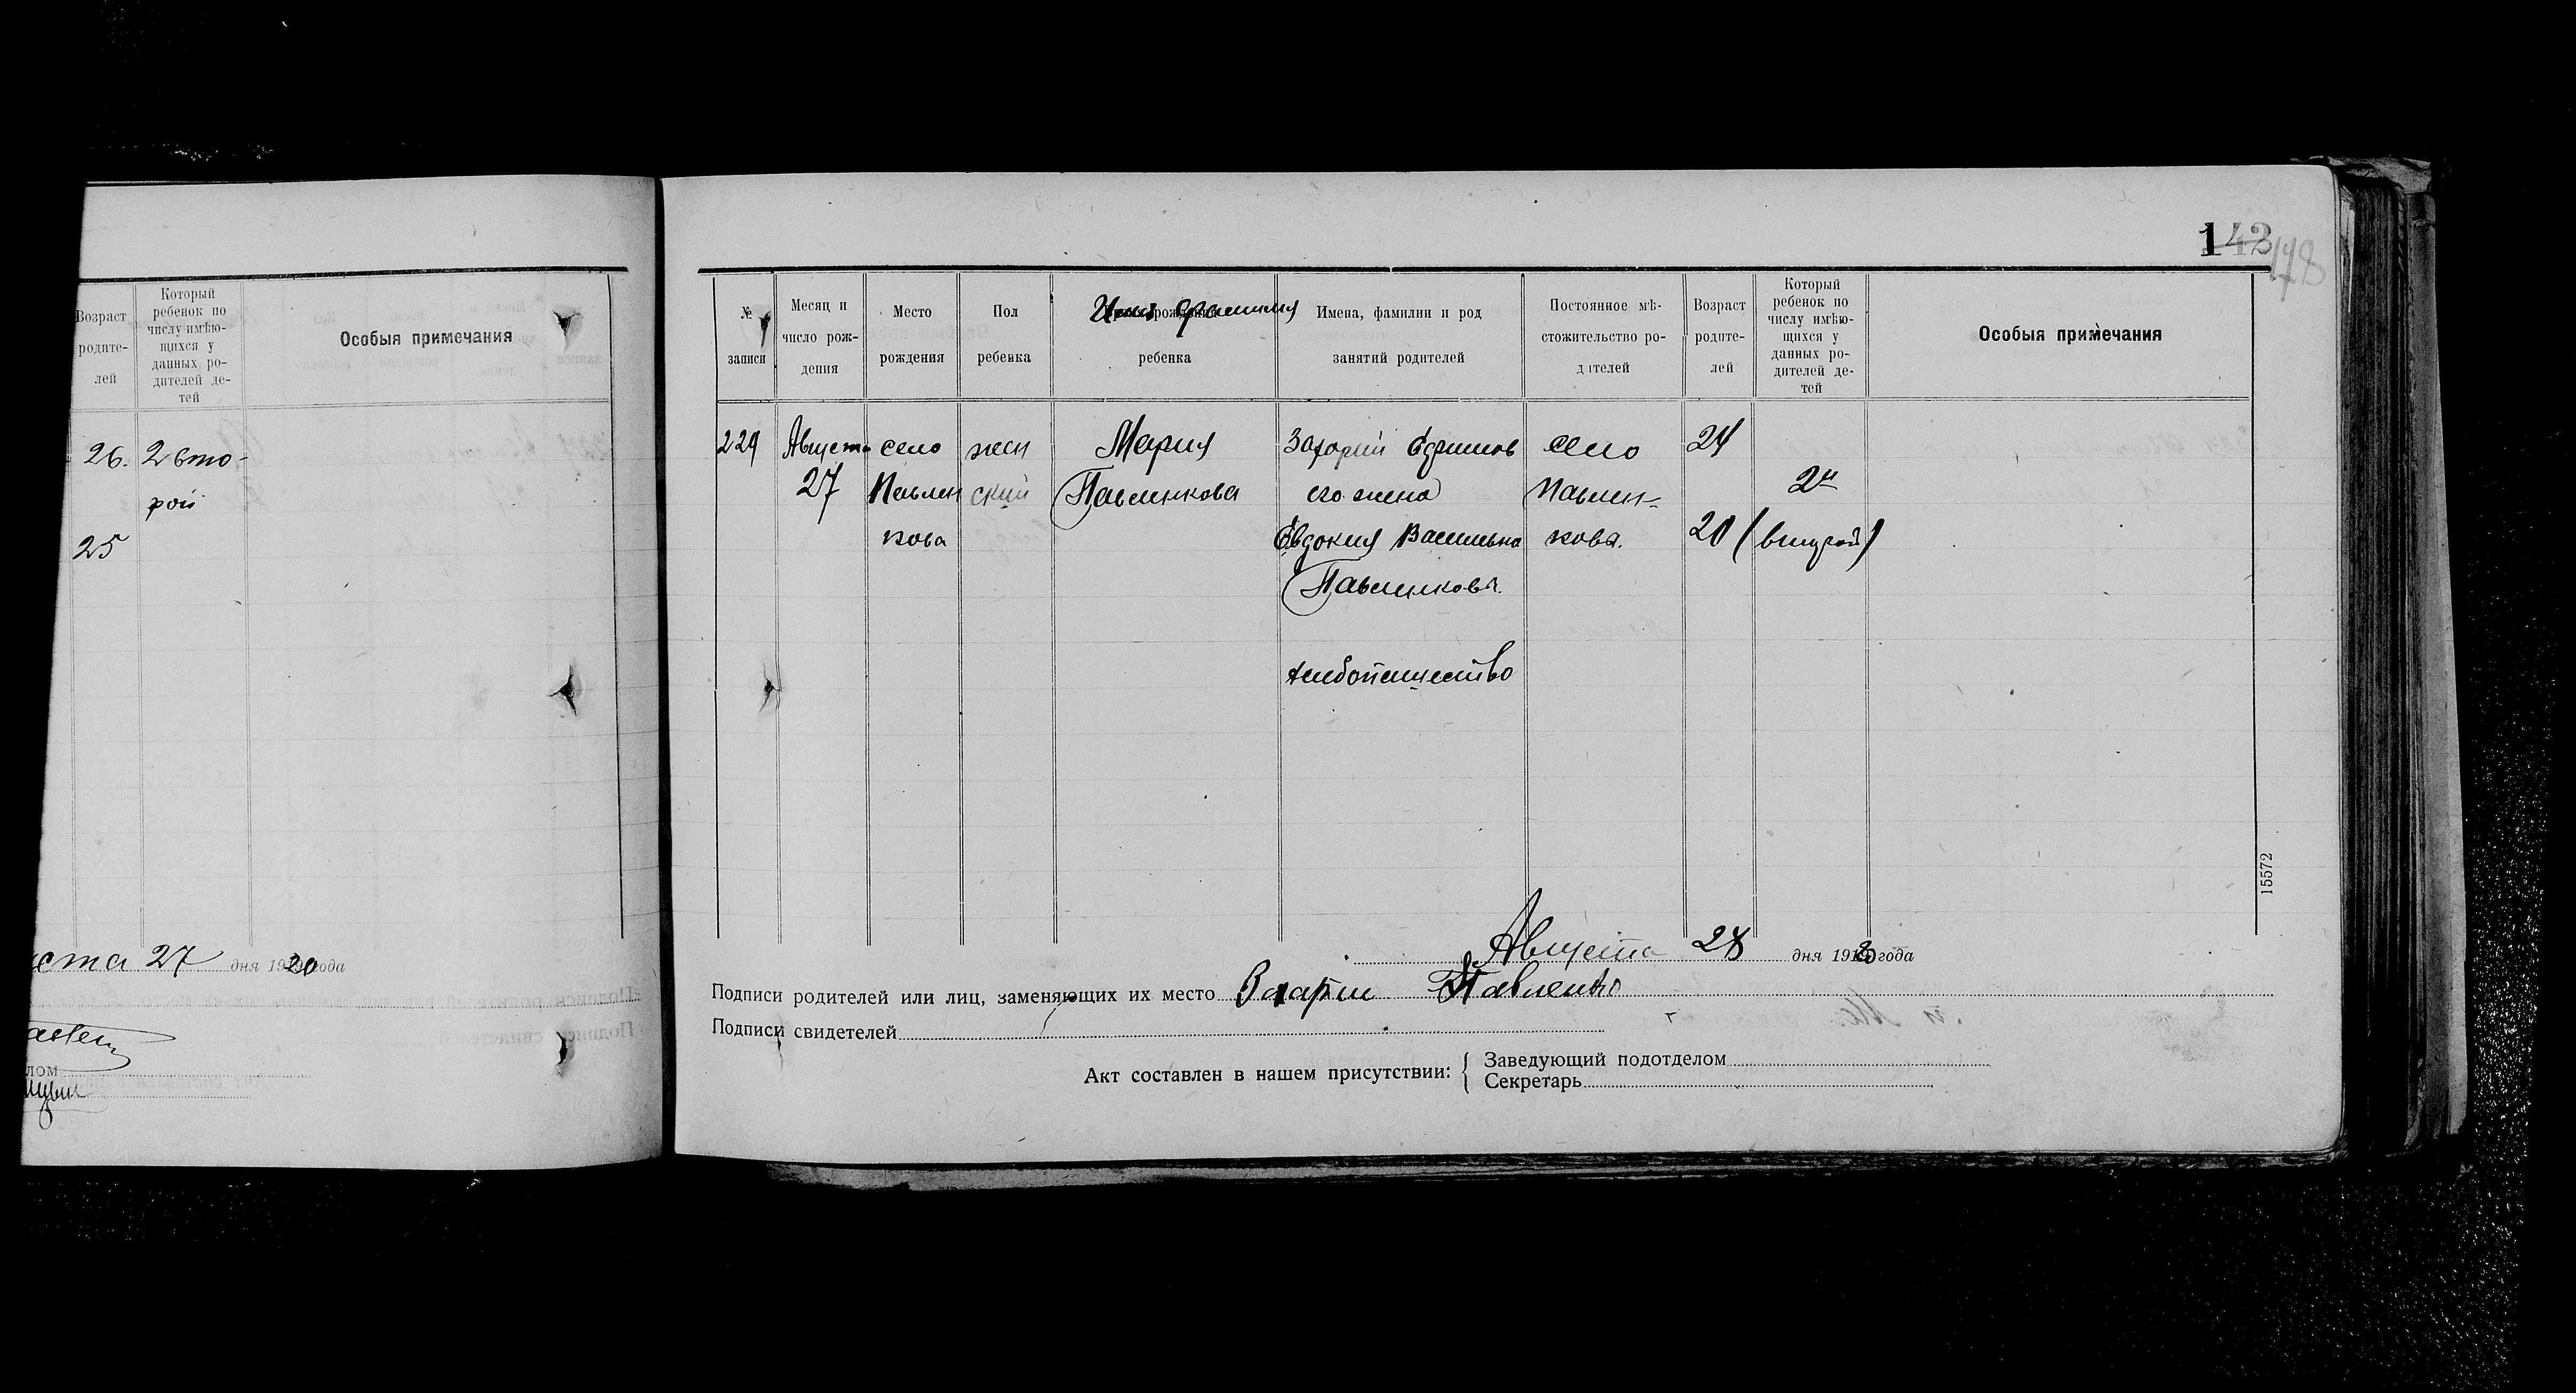 142
178
Возраст
родите-
лей
Который
ребенок по
числу имѣю-
щихся у
данных ро-
дителей де-
тей
Особыя примечания
26. 2 вто-
рой
25
ста 27 дня 1920 года
лом
№
записи
Месяц и
число рож-
дения
Место
рождения
Пол
ребенка
Имя фамилия
ребенка
Имена, фамилии и род
занятий родителей
Постоянное мѣ-
стожительство ро-
дителей
Возраст
родите-
лей
Который
ребенок по
числу имѣю-
щихся у
данных ро-
дителей де-
тей
Особыя примечания
229 Августа село жен Мария Захарий Ефимов село 24
27 Павлен ский Павленкова его жена Павлен- 2й
кова Евдокия Васильевна кова. 20 (второй)
Павленкова.
хлебопашество
15572
Августа 28 дня 1920 года
Подписи родителей или лиц, заменяющих их место Захарий Павленко
Подписи свидетелей
Акт составлен в нашем присутствии:
Заведующий подотделом
Секретарь